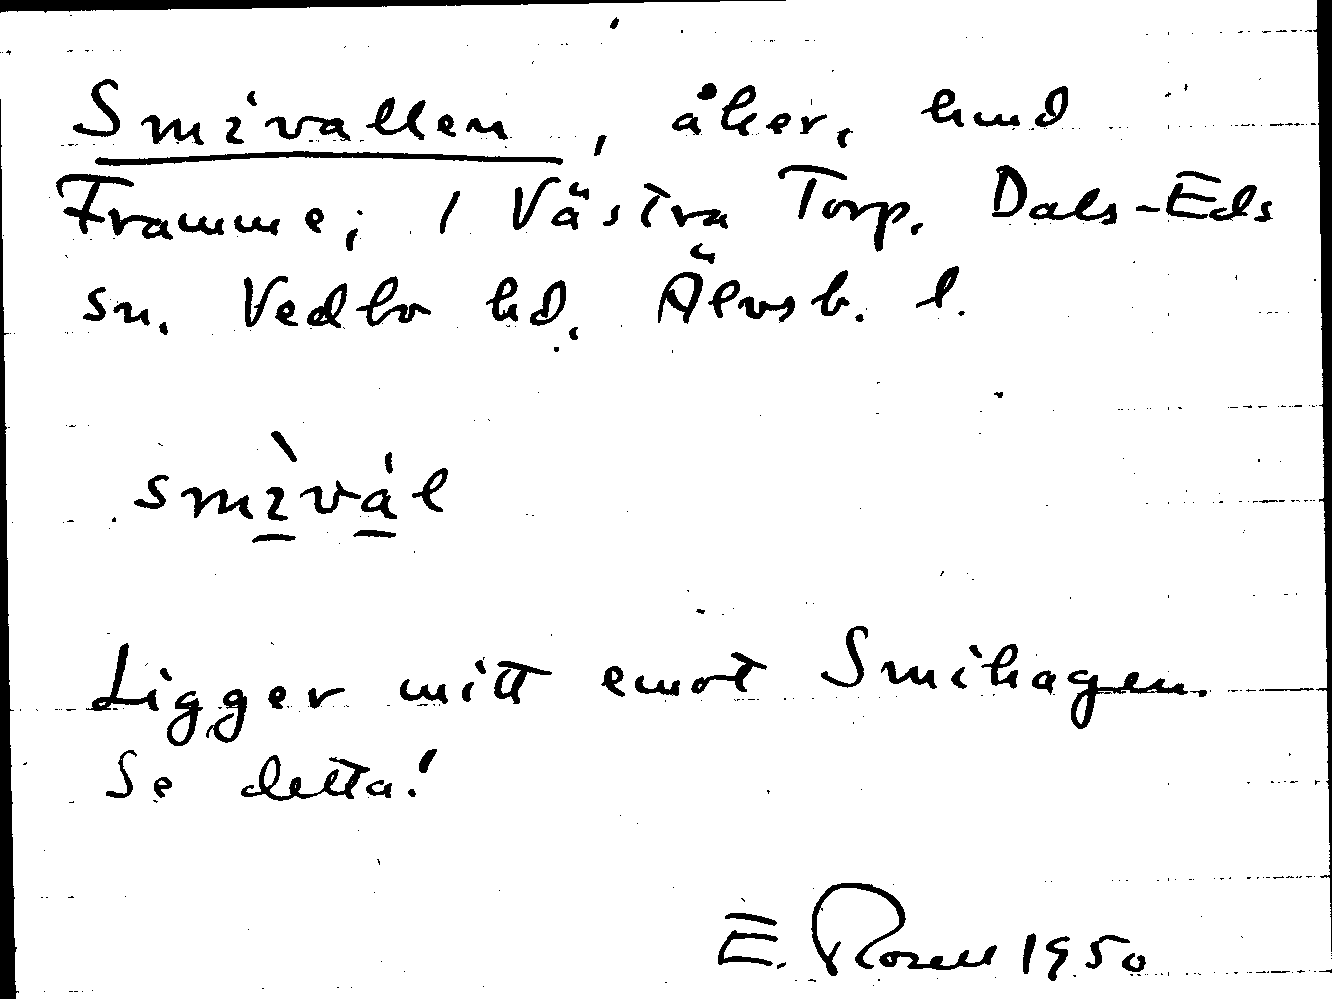 Smivallen, åker, hmd
Framme, 1 Västra Torp. Dals-Eds
sn. Vedbo hd. Älvsb. l.
smìvál
Ligger mitt emot Smihagen.
Se detta!
E. Rosell 1950